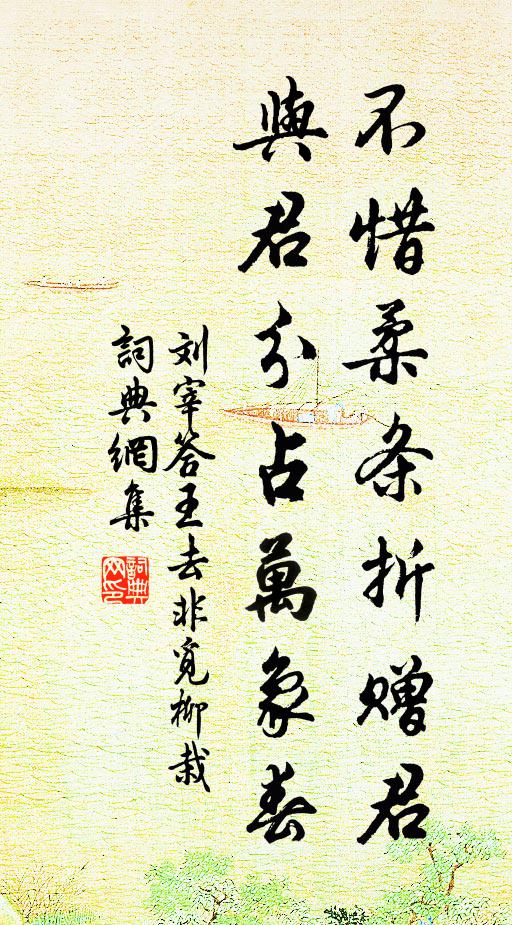 不惜柔条折赠君
與君分占萬象春
刘宰答王去非觅柳栽
詞典網集
詞典网印